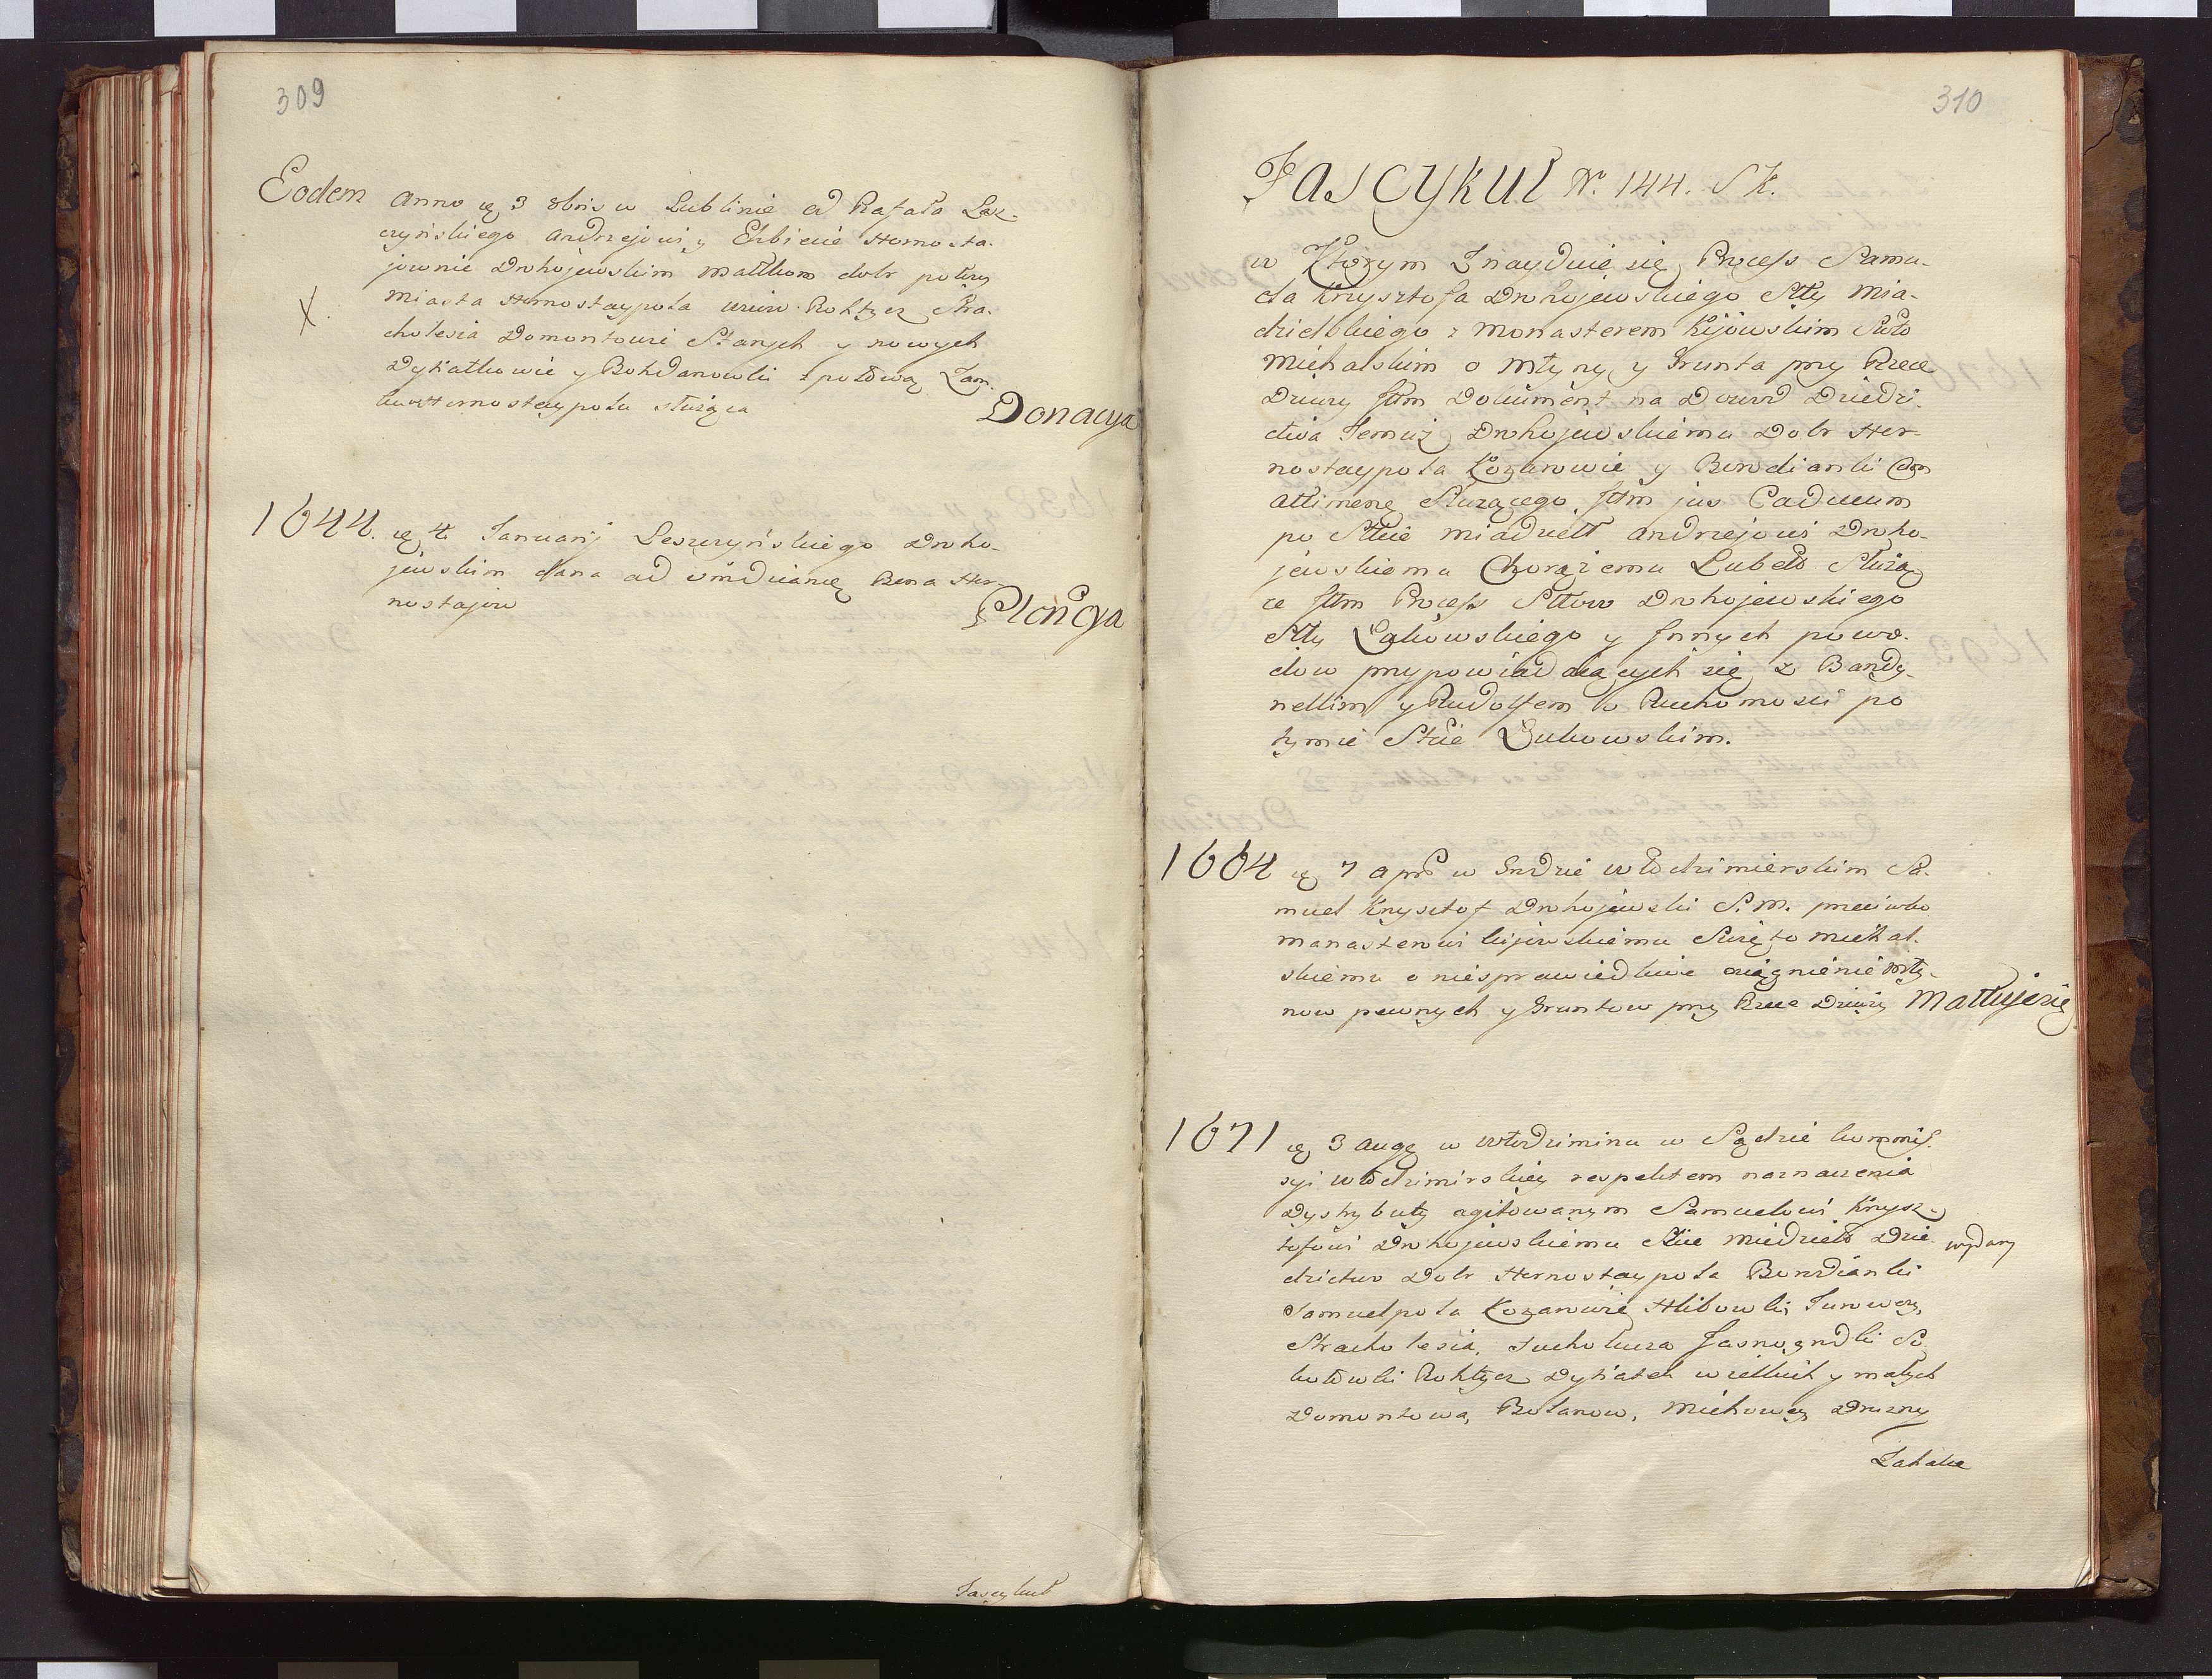 309
Eodem Anno 3 8bris w Lublinie od Rafała Lesz-
czyńskiego Andrzejowi y Elżbiecie Hornosta-
jownie Drohojewskim Małżkom dobr połowy
X. Miasta Hornostaypola Rohtycz Stra-
cholesia Domontowi Starych y nowych
Dytiatkowie y Bohdanowki z połową Zam-
ku Hornostaypolu służąca
Donacya
1644. 4 Januarij Leszczyńskiego Droho-
jewskim dana ad Bena Hor-
nostajow
Plencya
Fascykuł
310
Fascykuł Nr. 144. S K.
w Którym Znayduie się Process Samu-
ela Krysztofa Drohojewskiego Stty Mia-
dzielskiego z Monasterem Kijowskim Swto
Michalskim o Młyny y Grunta przy Rzece
Dzwizy Itm Dokument na Dowod Dziedzi-
ctwa Temuż Drohojewskiemu Dobr Hor-
nostaypola Kozarowic y Borodianki Cum
Attinenę Służącego, Itm jus Caducum
po Sttcie Miadzielt Andrzejowi Droho-
jewskiemu Chorążemu Lubels Służą-
ce Itm Process Sttow Drohojewskiego
Stty Łukowskiego y Innych powo-
dow przypowiadaiących się z Bandy-
nellim y Rudolfem o Ruchomości po
tymie Stcie Łukowskim.
1664 7 Apr w Grodzie Włodzimierskim Sa-
muel Krysztof Drohojewski S. M. przeciwko
Manasterowi kijowskiemu Swięto Michal-
skiemu o niesprawiedliwe osiągnienie Mły-
now pewnych y Gruntow przy Rzece Dzwizy Mattujęcie
1671 3 Augę w Włodzimirzu w Sądzie kommis-
syi Włodzimirskiey respektem naznaczenia
Dystrybuty agitowanym Samuelowi Krysz-
tofowi Drohojewskiemu Stcie Miedziels Dzie- wydany
dzictwo Dobr Hornostaypola Borodianki
Samuelpola Kozarowic Hlibowki, Jurowey,
Stracholesia, Sucholucza Jasnogrodki So-
kołowki Rohtycz Dytiatek wielkich y małych
Domontowa, Bolanow, Michowey Druzny
Zahalce